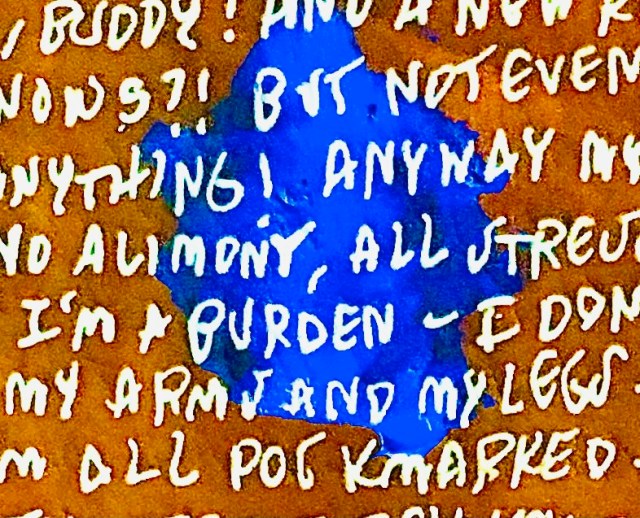 , BUDDY! AND A NEW
NOWS?! BUT NOT EVEN
ANYTHING! ANYWAY MY
NO ALIMONY, ALL STRE
I'M A BURDEN - I DON
MY ARMS AND MY LEGS
M ALL POCKMARKED